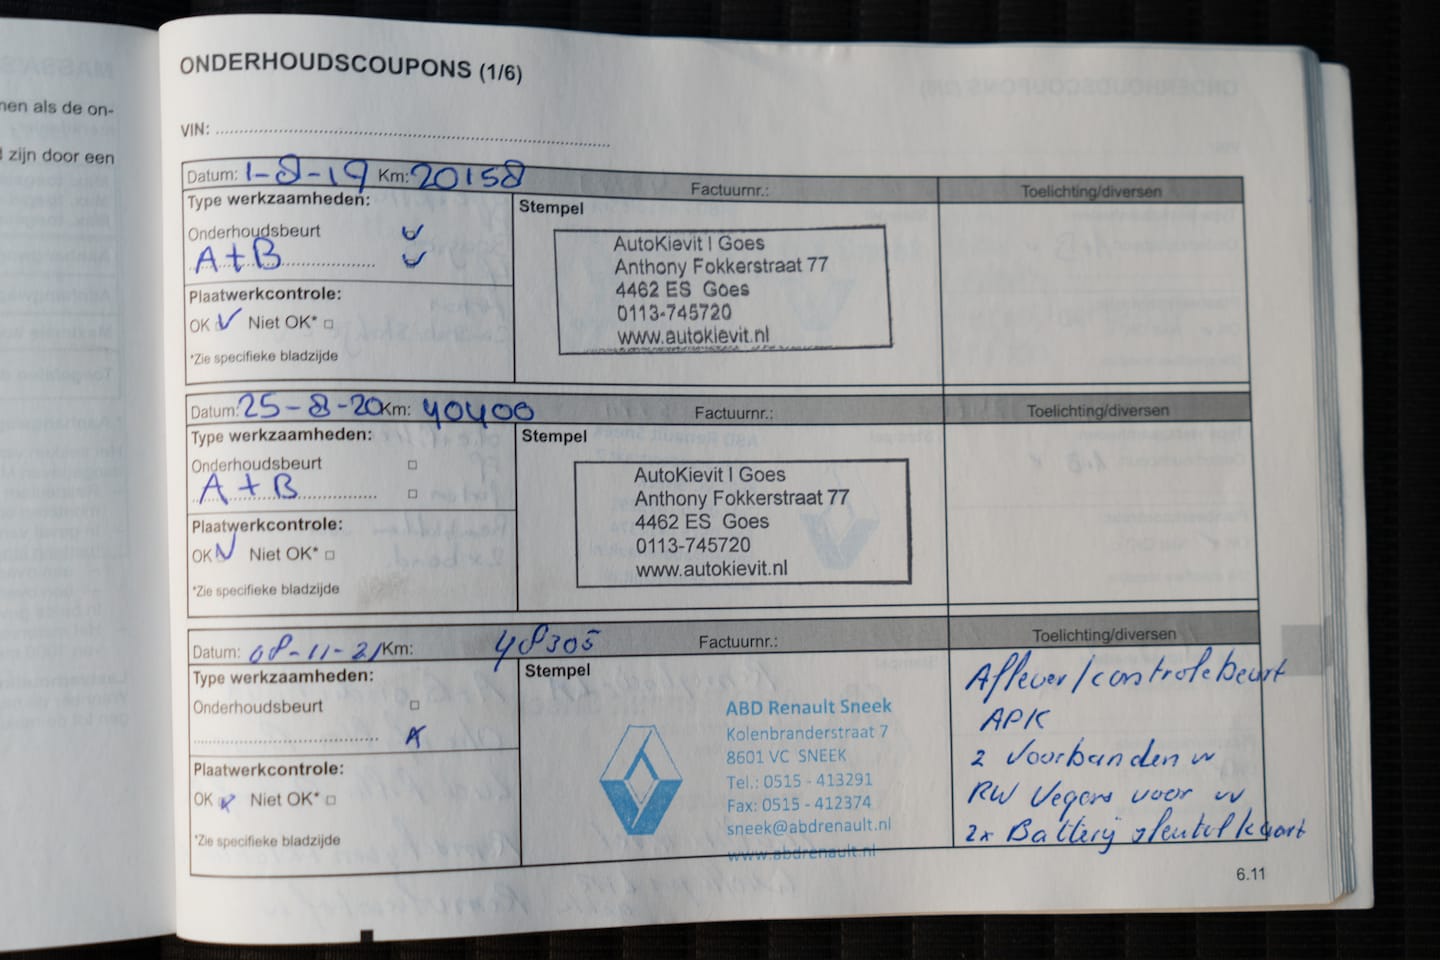 nen als de on-
l zijn door een
ONDERHOUDSCOUPONS (1/6)
VIN:
Datum: 1-8-19 Km: 20158 Factuurnr.: Toelichting/diversen
Type werkzaamheden:
Stempel
Onderhoudsbeurt
A+B
Plaatwerkcontrole:
OK Niet OK*
*Zie specifieke bladzijde
AutoKievit | Goes
Anthony Fokkerstraat 77
4462 ES Goes
0113-745720
www.autokievit.nl
Datum: 25-8-20 Km: 40400 Factuurnr.: Toelichting/diversen
Type werkzaamheden:
Stempel
Onderhoudsbeurt
A+B
Plaatwerkcontrole:
OK Niet OK*
*Zie specifieke bladzijde
AutoKievit | Goes
Anthony Fokkerstraat 77
4462 ES Goes
0113-745720
www.autokievit.nl
Datum: 08-11-21 Km: 48305 Factuurnr.: Toelichting/diversen
Type werkzaamheden:
Stempel
Onderhoudsbeurt
Plaatwerkcontrole:
OK Niet OK*
*Zie specifieke bladzijde
ABD Renault Sneek
Kolenbranderstraat 7
8601 VC SNEEK
Tel.: 0515 - 413291
Fax: 0515 - 412374
sneek@abdrenault.nl
www.abdrenault.nl
Aflever/controlebeurt
APK
2 Voorbanden vv
RW Vegers voor vv
2x Batterij sleutelkaart
6.11